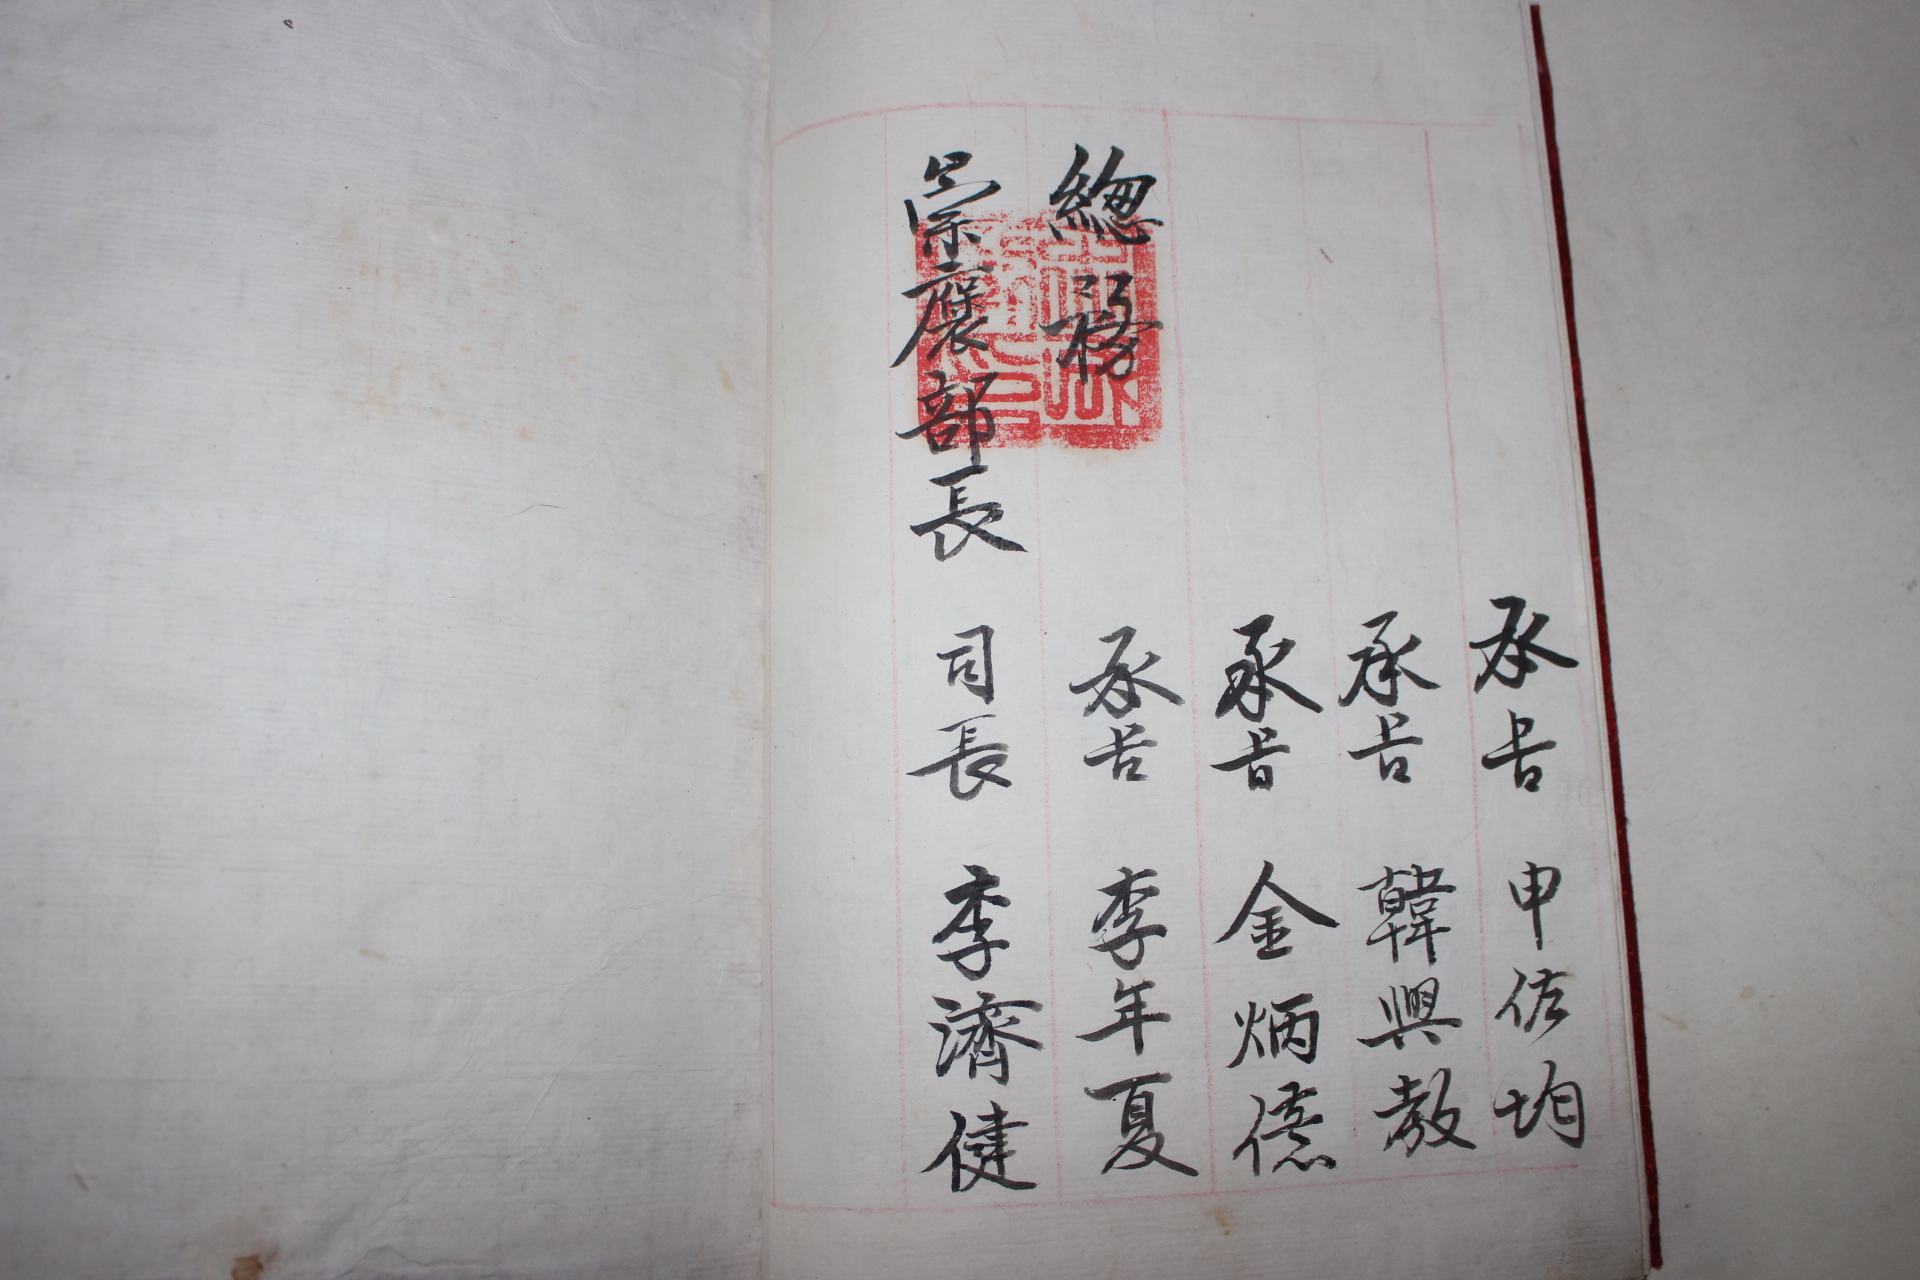 承旨 申佐均
承旨 韓興教
承旨 金炳億
總務 承旨 李年夏
崇褒部長 司長 李濟健